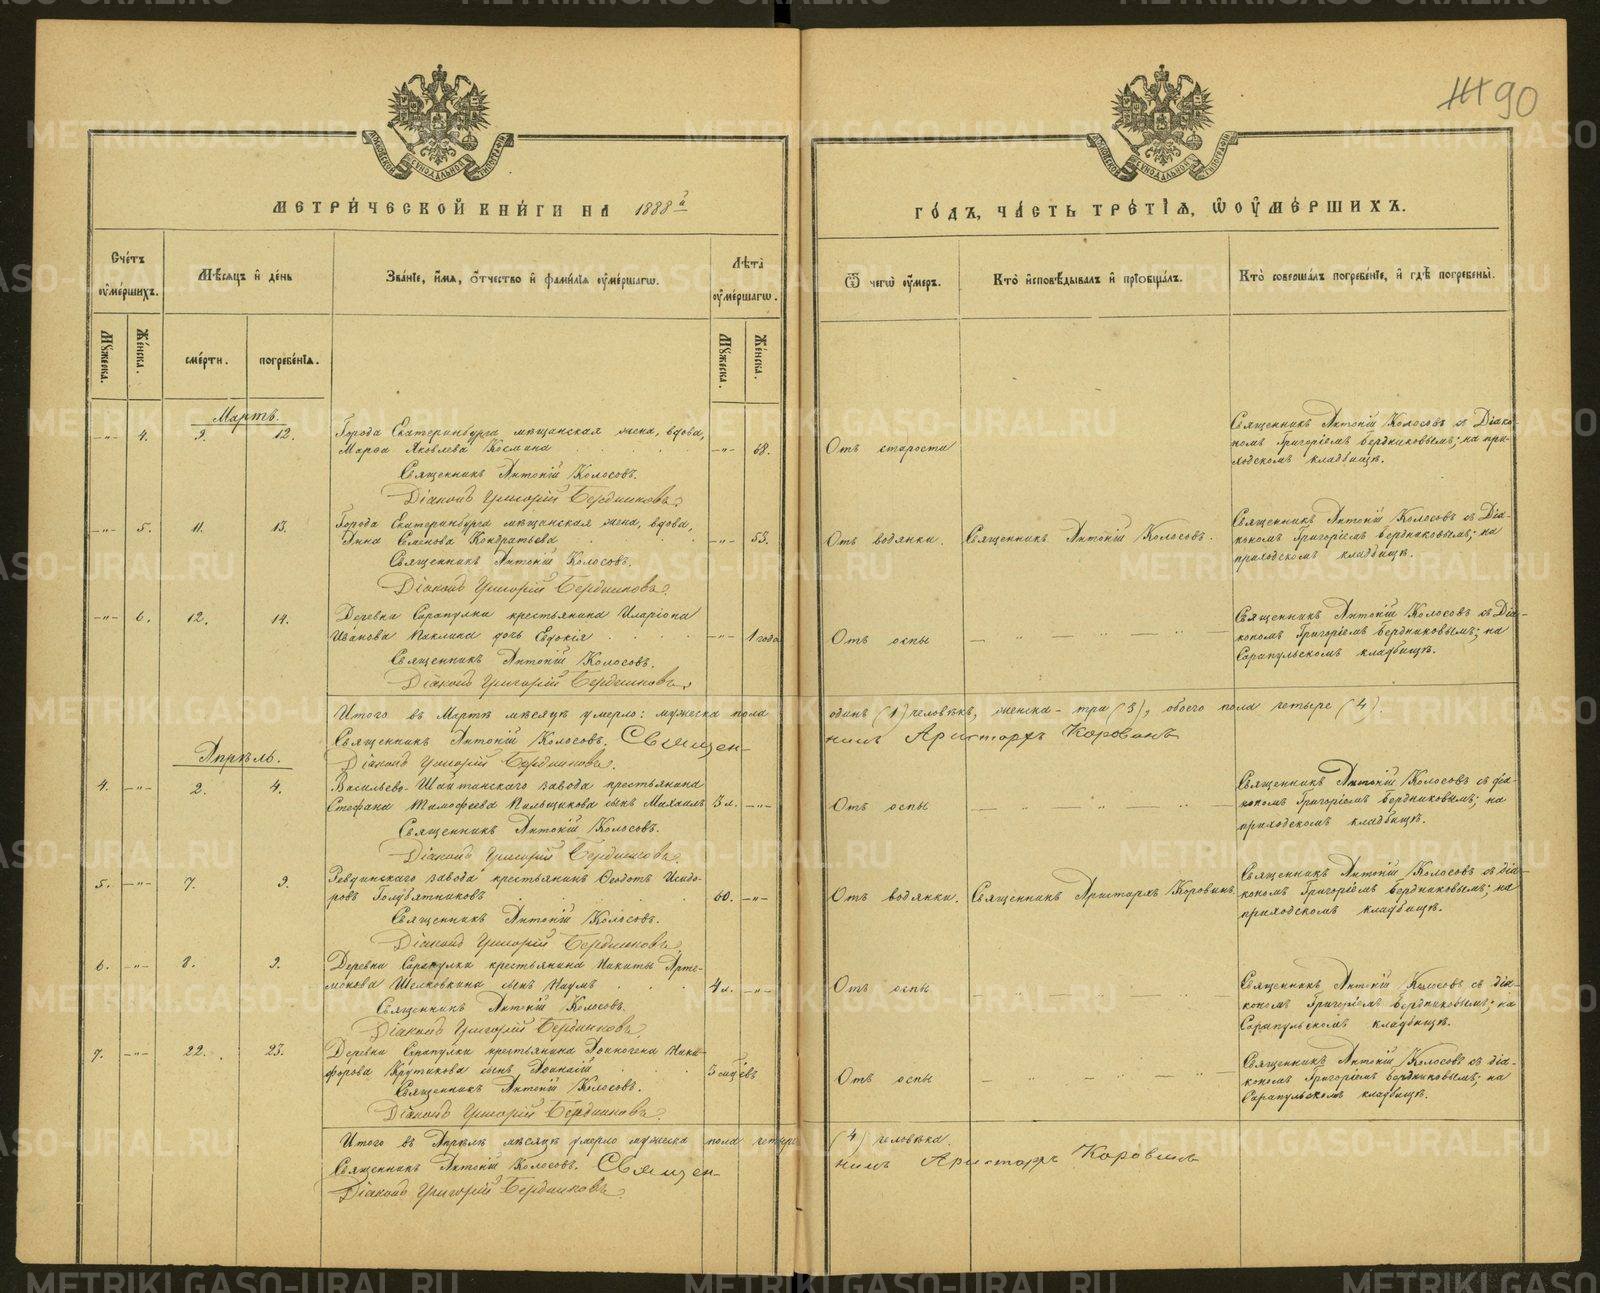 90
МЕТРИЧЕСКОЙ КНИГИ НА 1888й
ГОДЪ, ЧАСТЬ ТРЕТІЯ, Ѡ ОУМЕРШИХЪ.
Счетъ оумершихъ.
Мѣсяцъ и день
Званіе, имя, отчество и фамилія оумершагѡ.
Лѣта оумершагѡ.
Ѿ чегѡ оумеръ.
Кто исповѣдывалъ и пріобщалъ.
Кто совершалъ погребеніе, и гдѣ погребены.
Мꙋжеска.
Женска.
смерти.
погребенія.
Мꙋжеска.
Женска.
Мартъ.
—„— 4. 9. 12.
Города Екатеринбурга мѣщанская жена, вдова,
Марѳа Яковлева Космина —„— 68.
Священникъ Антоній Колосовъ.
Діаконъ Григорій Бердниковъ.
Отъ старости
Священникъ Антоній Колосовъ съ Діако-
номъ Григоріемъ Бердниковымъ; на при-
ходскомъ кладбищѣ.
—„— 5. 11. 13.
Города Екатеринбурга мѣщанская жена, вдова,
Анна Семенова Кондратьева —„— 53.
Священникъ Антоній Колосовъ.
Діаконъ Григорій Бердниковъ.
Отъ водянки.
Священникъ Антоній Колосовъ.
Священникъ Антоній Колосовъ съ Діа-
кономъ Григоріемъ Бердниковымъ; на
приходскомъ кладбищѣ.
—„— 6. 12. 14.
Деревни Сарапулки крестьянина Иларіона
Иванова Паклина дочь Евдокія —„— 1 года
Священникъ Антоній Колосовъ.
Діаконъ Григорій Бердниковъ.
Отъ оспы
Священникъ Антоній Колосовъ съ Діа-
кономъ Григоріемъ Бердниковымъ; на
Сарапульскомъ кладбищѣ.
Итого въ Мартѣ мѣсяцѣ умерло: мужеска пола
одинъ (1) человѣкъ, женска - три (3), обоего пола четыре (4).
Священникъ Антоній Колосовъ. Священ-
никъ Аристархъ Коровинъ
Діаконъ Григорій Бердниковъ.
Апрѣль.
4. —„— 2. 4.
Васильево-Шайтанскаго завода крестьянина
Стефана Тимофеева Пильщикова сынъ Михаилъ 3 л. —„—
Священникъ Антоній Колосовъ.
Діаконъ Григорій Бердниковъ.
Отъ оспы
Священникъ Антоній Колосовъ съ діа-
кономъ Григоріемъ Бердниковымъ; на
приходскомъ кладбищѣ.
5. —„— 7. 9.
Ревдинскаго завода крестьянинъ Ѳеодотъ Исидо-
ровъ Голубятниковъ 60. —„—
Священникъ Антоній Колосовъ.
Діаконъ Григорій Бердниковъ.
Отъ водянки.
Священникъ Аристархъ Коровинъ.
Священникъ Антоній Колосовъ съ діа-
кономъ Григоріемъ Бердниковымъ; на
приходскомъ кладбищѣ.
6. —„— 8. 9.
Деревни Сарапулки крестьянина Никиты Арте-
монова Шелковкина сынъ Наумъ 4 л. —„—
Священникъ Антоній Колосовъ.
Діаконъ Григорій Бердниковъ.
Отъ оспы
Священникъ Антоній Колосовъ съ діа-
кономъ Григоріемъ Бердниковымъ; на
Сарапульскомъ кладбищѣ.
7. —„— 22. 23.
Деревни Сарапулки крестьянина Ники-
форова Крутикова сынъ
Священникъ Антоній Колосовъ.
Діаконъ Григорій Бердниковъ.
Отъ оспы
Священникъ Антоній Колосовъ съ діа-
кономъ Григоріемъ Бердниковымъ; на
Сарапульскомъ кладбищѣ.
Итого въ Апрѣлѣ мѣсяцѣ умерло мужеска пола четыре
(4) человѣка.
Священникъ Антоній Колосовъ. Священ-
никъ Аристархъ Коровинъ
Діаконъ Григорій Бердниковъ.
METRIKI.GASO-URAL.RU